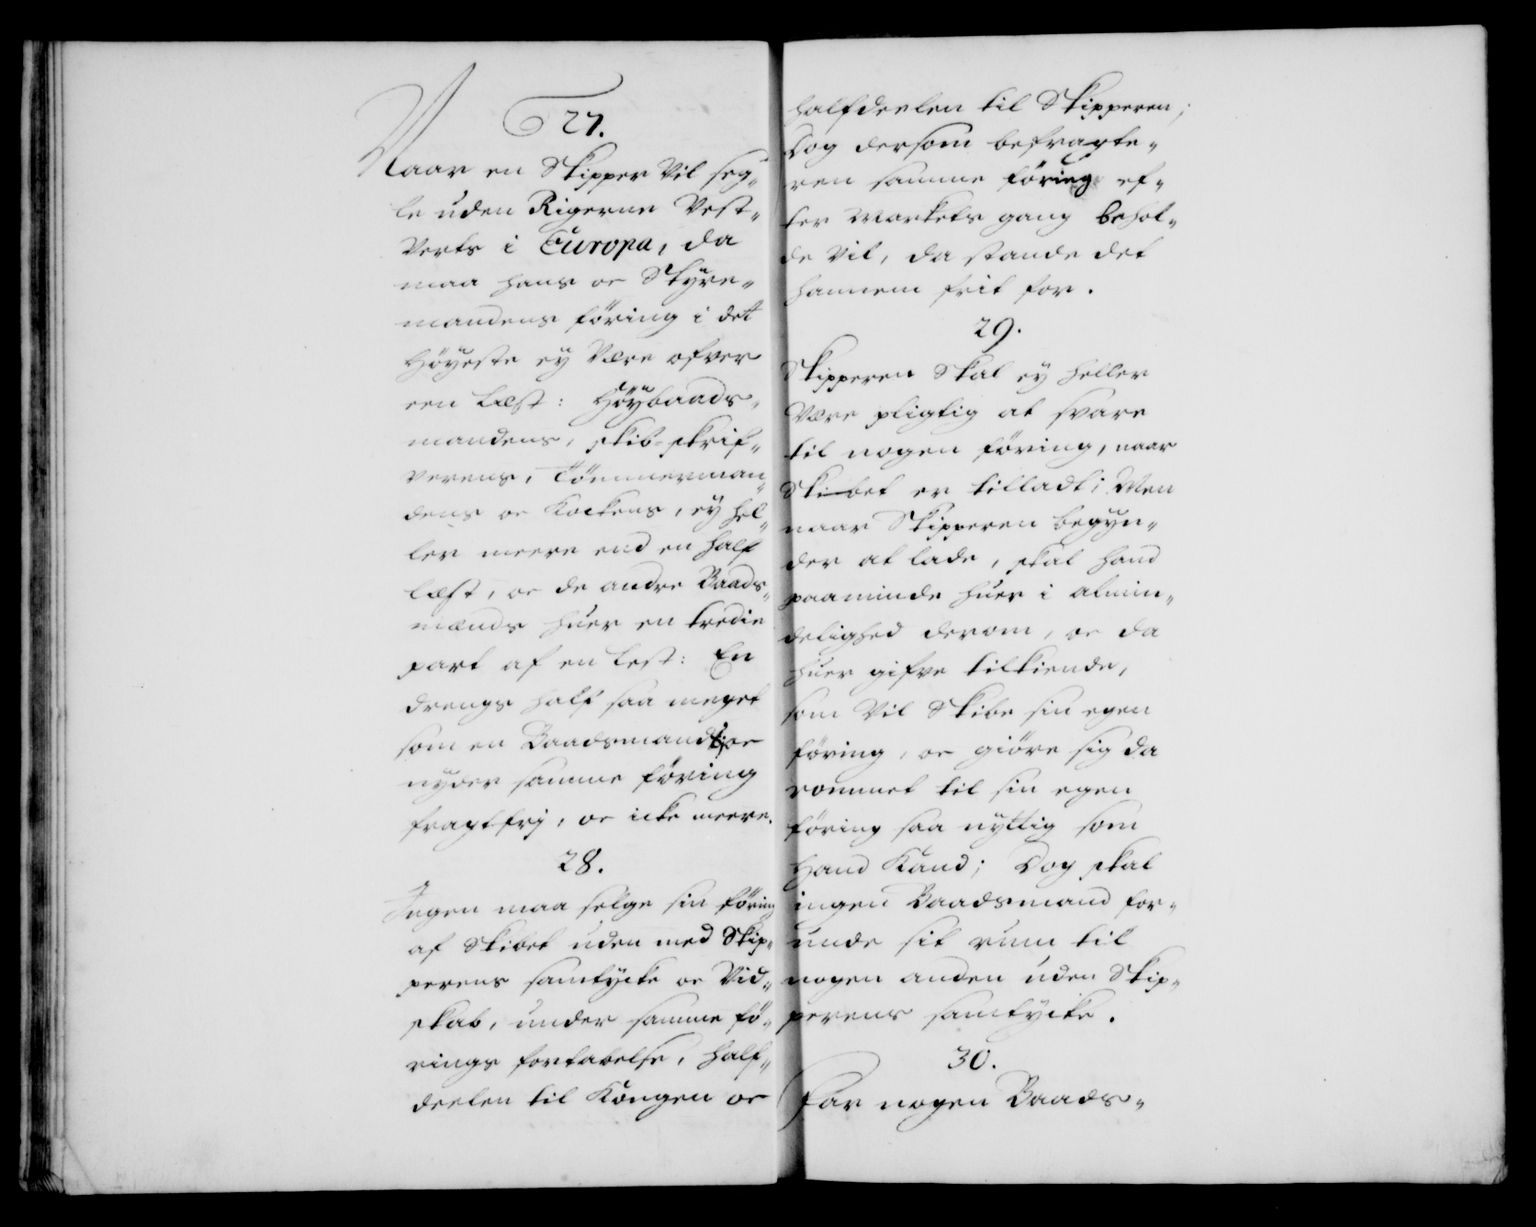 27.
Naar en Skipper Vil seg„
le uden Rigerne Vest„
Verts i Europa, da
maa hans oc Styre„
mandens föring i dett
Höyeste ey Være ofver
een Læst: Höybaads„
mandens, skib-skrif„
verens, Tömmerman„
dens oc Kockens, ey hel„
ler meere end en half
Læst, oc de andre Baads„
mænds huer en tredie
part af en Lest: En
drengs half saa meget
som en Baadsmands; oc
nyder samme föring
fragt frj, oc icke meere.
28.
Ingen maa selge sin föring
af Skibet uden med Skip„
perens samtycke oc Vid„
skab, under samme fö„
rings fortabelse, half„
deelen til Kongen oc
halfdeelen til Skipperen;
Dog dersom befragte„
ren samme föring ef„
ter Markets gang behol„
de Vil, da stande det
hannem frit for.
29.
Skipperen Skal ey heller
Være pligtig at svare
til nogen föring, naar
Skibet er tilladt; Men
naar Skipperen begyn„
der at lade, skal hand
paaminde huer i almin„
delighed derom, oc da
huer gifve tilkiende,
som Vil Skibe sin egen
föring, oc giöre sig da
rommet til sin egen
föring saa nyttig som
Hand Kand; Dog skal
ingen Baadsmand for„
unde sit rum til
nogen anden uden Skip„
perens samtycke.
30.
Har nogen Baads„